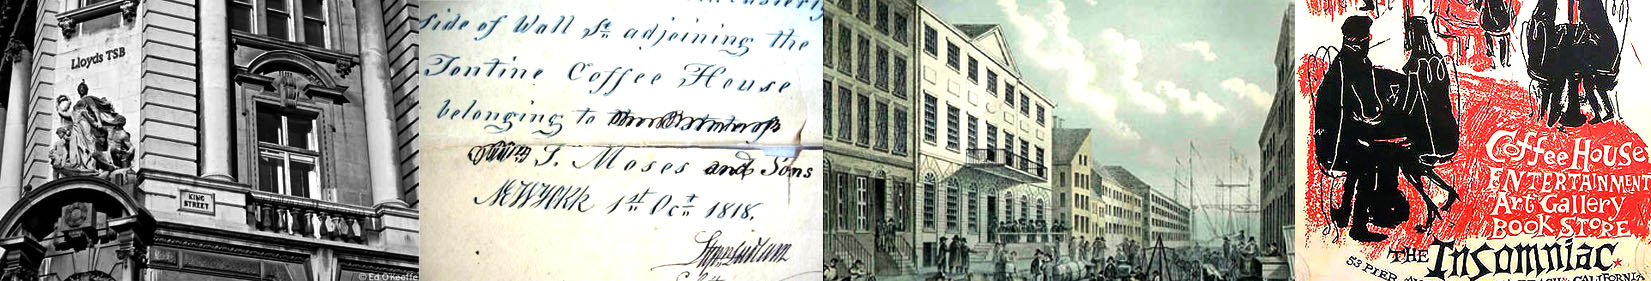 Lloyds TSB
KING
STREET
© Ed O'Keeffe
side of Wall St adjoining the
Tontine Coffee House
belonging to
T. Moses and Sons
NEWYORK 1st Oct 1818.
Coffee House
ENTERTAINMENT
Art Gallery
BOOK STORE
THE Insomniac
53 PIER
BEACH CALIFORNIA